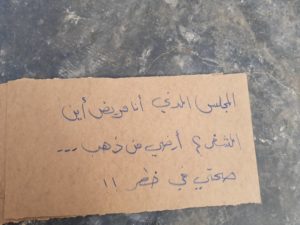 المجلس المدني أنا مريض أين
المشفى؟ أرضي من ذهب ...
صحتي في خطر !!